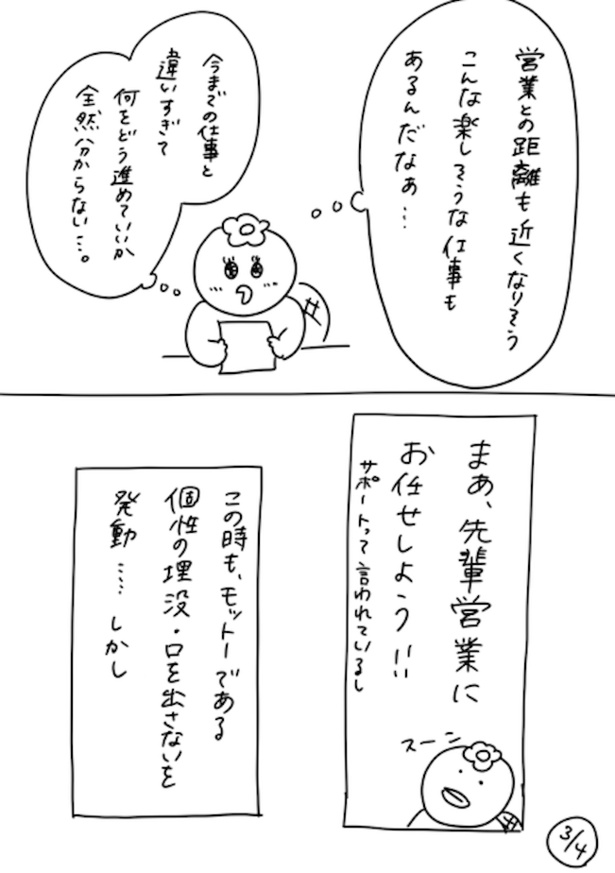 営業との距離も近くなりそう
こんな楽しそうな仕事も
あるんだなぁ…
今までの仕事と
違いすぎて
何をどう進めていいか
全然分からない…。
まあ、先輩営業に
お任せしよう!!
サポートって言われているし
スーン
この時も、モットーである
個性の埋没・口を出さないを
発動…… しかし
3/4